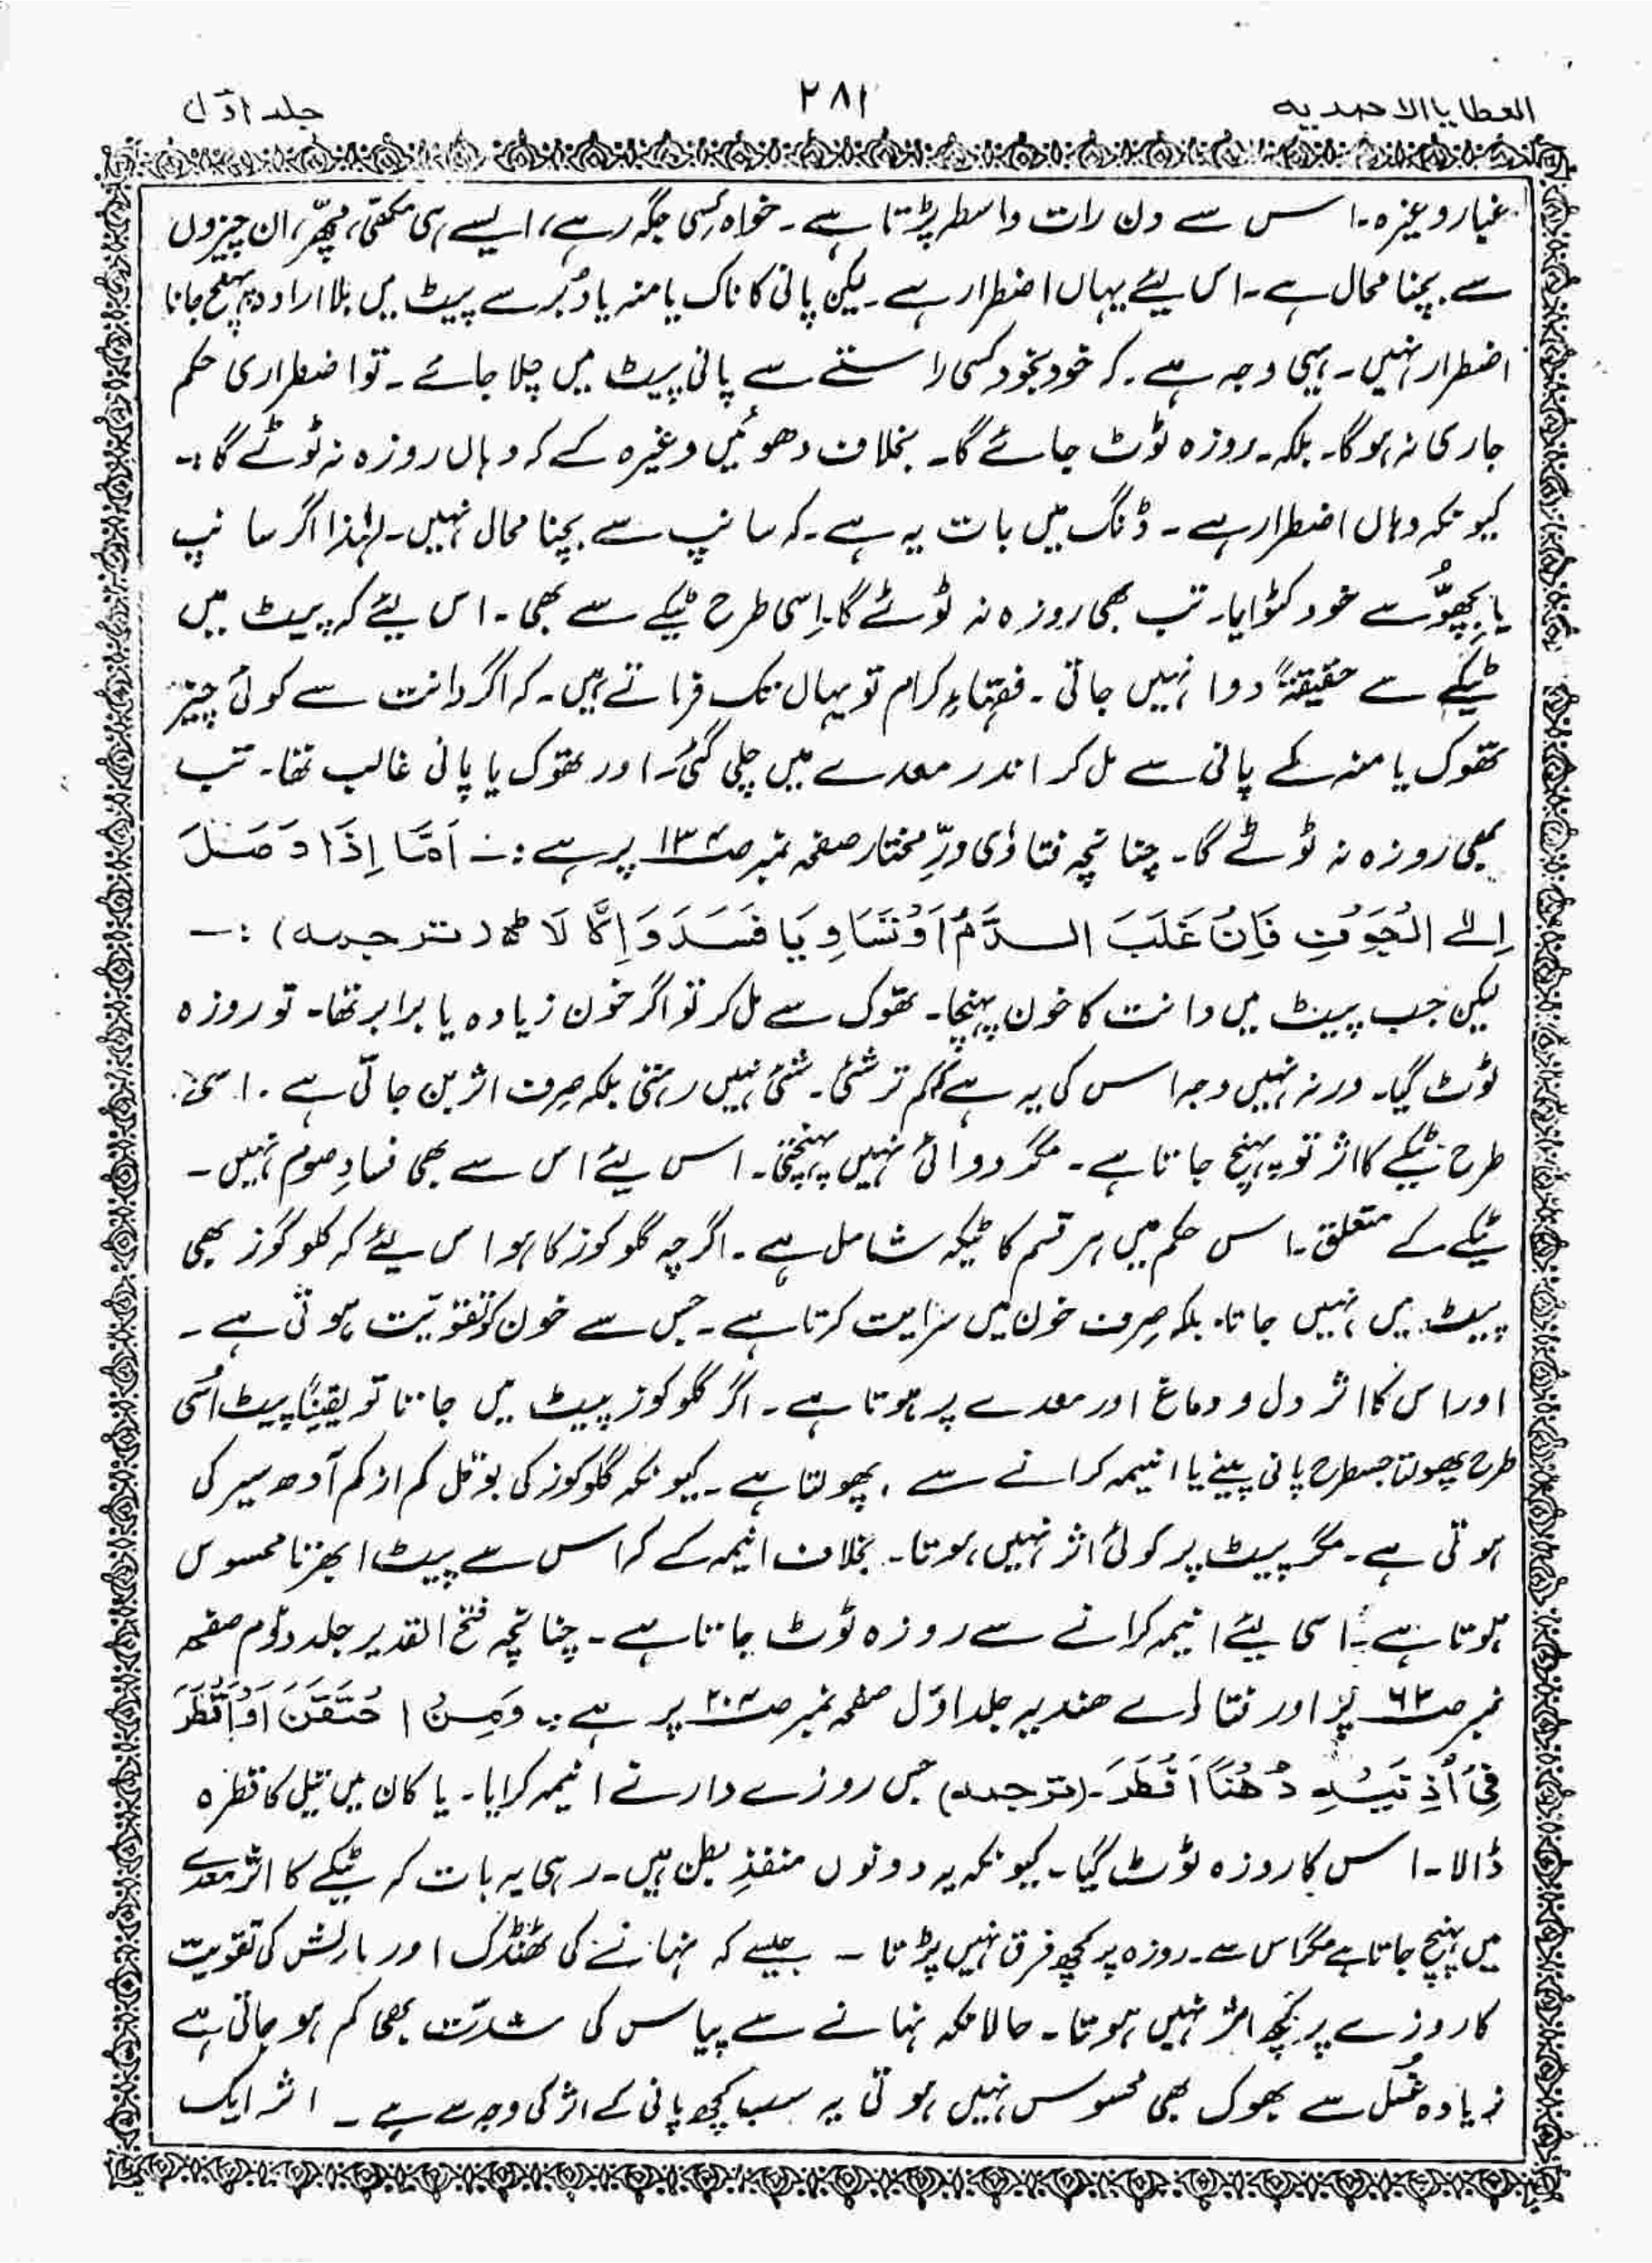 العطایا الاحمدیہ ۲۸۱ جلد اوّل
غبار وغیرہ۔ اس سے دن رات واسطہ پڑتا ہے۔ خواہ کسی جگہ رہے، ایسے ہی مکھّی، مچھّر، ان چیزوں
سے بچنا محال ہے۔ اس لیئے یہاں اضطرار ہے۔ لیکن پانی کا ناک یا منہ یا دُبر سے پیٹ میں بلا ارادہ پہنچ جانا
اضطرار نہیں۔ یہی وجہ ہے۔ کہ خود بخود کسی راستے سے پانی پیٹ میں چلا جائے۔ تو اضطراری حکم
جاری نہ ہوگا۔ بلکہ۔ روزہ ٹوٹ جائے گا۔ بخلاف دھوئیں وغیرہ کے کہ وہاں روزہ نہ ٹوٹے گا:۔
کیونکہ وہاں اضطرار ہے۔ ڈنگ میں بات یہ ہے۔ کہ سانپ سے بچنا محال نہیں۔ لہٰذا اگر سانپ
یا بچھوُّ سے خود کٹوایا۔ تب بھی روزہ نہ ٹوٹے گا۔ اِسی طرح ٹیکے سے بھی۔ اس لیئے کہ پیٹ میں
ٹیکے سے حقیقۃً دوا نہیں جاتی۔ فقہاءِ کرام تو یہاں تک فرماتے ہیں۔ کہ اگر دانت سے کوئی چیز
تھوک یا منہ کے پانی سے مل کر اندر معدے میں چلی گئی۔ اور تھوک یا پانی غالب تھا۔ تب
بھی روزہ نہ ٹوٹے گا۔ چنانچہ فتاوٰی درِّ مختار صفحہ نمبر صـ۱۳۴ پر ہے:۔ اَمَّا اِذَا وَصَلَ
اِلٰے الْجَوْفِ فَاِنْ غَلَبَ الدَّمُ اَوْ تَسَاوِیَا فَسَدَ وَ اِلَّا لَا ط (ترجمہ) :۔
لیکن جب پیٹ میں دانت کا خون پہنچا۔ تھوک سے مل کر تو اگر خون زیادہ یا برابر تھا۔ تو روزہ
ٹوٹ گیا۔ ورنہ نہیں وجہ اس کی یہ ہے کہ کم تر شئی۔ شئی نہیں رہتی بلکہ صِرف اثر بن جاتی ہے۔ اسی
طرح ٹیکے کا اثر تو پہنچ جاتا ہے۔ مگر دوائی نہیں پہنچتی۔ اس لیئے اس سے بھی فسادِ صوم نہیں۔
ٹیکے کے متعلق۔ اس حکم میں ہر قسم کا ٹیکہ شامل ہے۔ اگرچہ گلوکوز کا ہو اس لیئے کہ گلوگوز بھی
پیٹ میں نہیں جاتا۔ بلکہ صِرف خون میں سرایت کرتا ہے۔ جس سے خون کو تقوِیّت ہوتی ہے۔
اور اس کا اثر دل و دماغ اور معدے پر ہوتا ہے۔ اگر گلوکوز پیٹ میں جاتا تو یقیناً پیٹ اُسی
طرح پھولتا جسطرح پانی پینے یا انیمہ کرانے سے پھولتا ہے۔ کیونکہ گلوکوز کی بوتل کم از کم آدھ سیر کی
ہوتی ہے۔ مگر پیٹ پر کوئی اثر نہیں ہوتا۔ بخلاف انیمہ کے کہ اس سے پیٹ ابھرنا محسوس
ہوتا ہے۔ اسی لیئے انیمہ کرانے سے روزہ ٹوٹ جاتا ہے۔ چنانچہ فتح القدیر جلد دوُم صفحہ
نمبر صـ۶۲ پر اور فتاوٰے ھندیہ جلد اوّل صفحہ نمبر صـ۲۰۴ پر ہے:۔ وَمِنْ احْتَقَنَ اَوْ اَقْطَرَ
فِیْ اُذِنَیْہِ دُھْنًا اَفْطَرَ۔ (ترجمہ) جس روزے دار نے انیمہ کرایا۔ یا کان میں تیل کا قطرہ
ڈالا۔ اس کا روزہ ٹوٹ گیا۔ کیونکہ یہ دونوں منفذِ بطن ہیں۔ رہی یہ بات کہ ٹیکے کا اثر معدے
میں پہنچ جاتا ہے مگر اس سے۔ روزہ پر کچھ فرق نہیں پڑتا۔ جیسے کہ نہانے کی ٹھنڈک اور بارش کی تقویت
کا روزے پر کچھ اثر نہیں ہوتا۔ حالانکہ نہانے سے پیاس کی شدّت بھی کم ہو جاتی ہے
زیادہ غُسل سے بھوک بھی محسوس نہیں ہوتی یہ سب کچھ پانی کے اثر کی وجہ سے ہے۔ اثر ایک